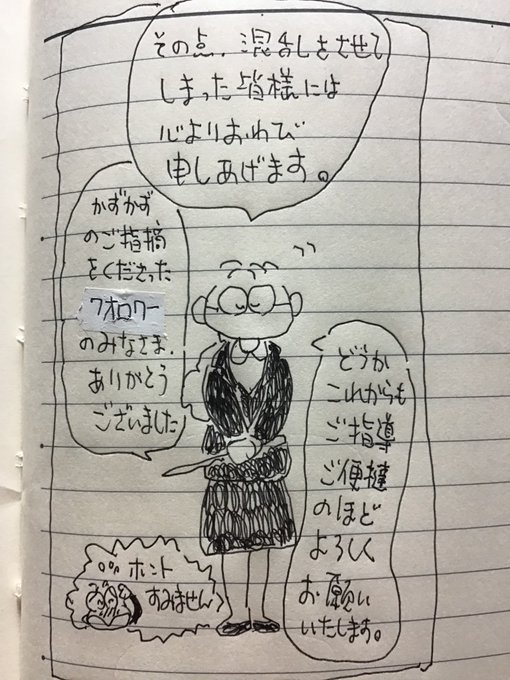 その点、混乱をさせて
しまった皆様には
心よりおわび
申しあげます。
かずかず
のご指摘
をくださった
フォロワー
のみなさま、
ありがとう
ございました
どうか
これからも
ご指導
ご便撻
のほど
よろしく
お願い
いたします。
ホント
すみません